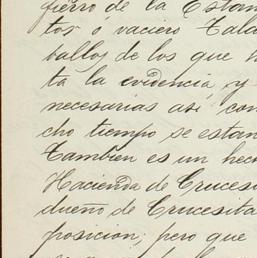 fierro de la Estan
tos ó vaciero Tala
ballos de los que h
ta la evidencia y
necesarias asi con
cho tiempo se estan
Tambien es un hech
Hacienda de Crucesi
dueño de Crucesita
posicion; pero que